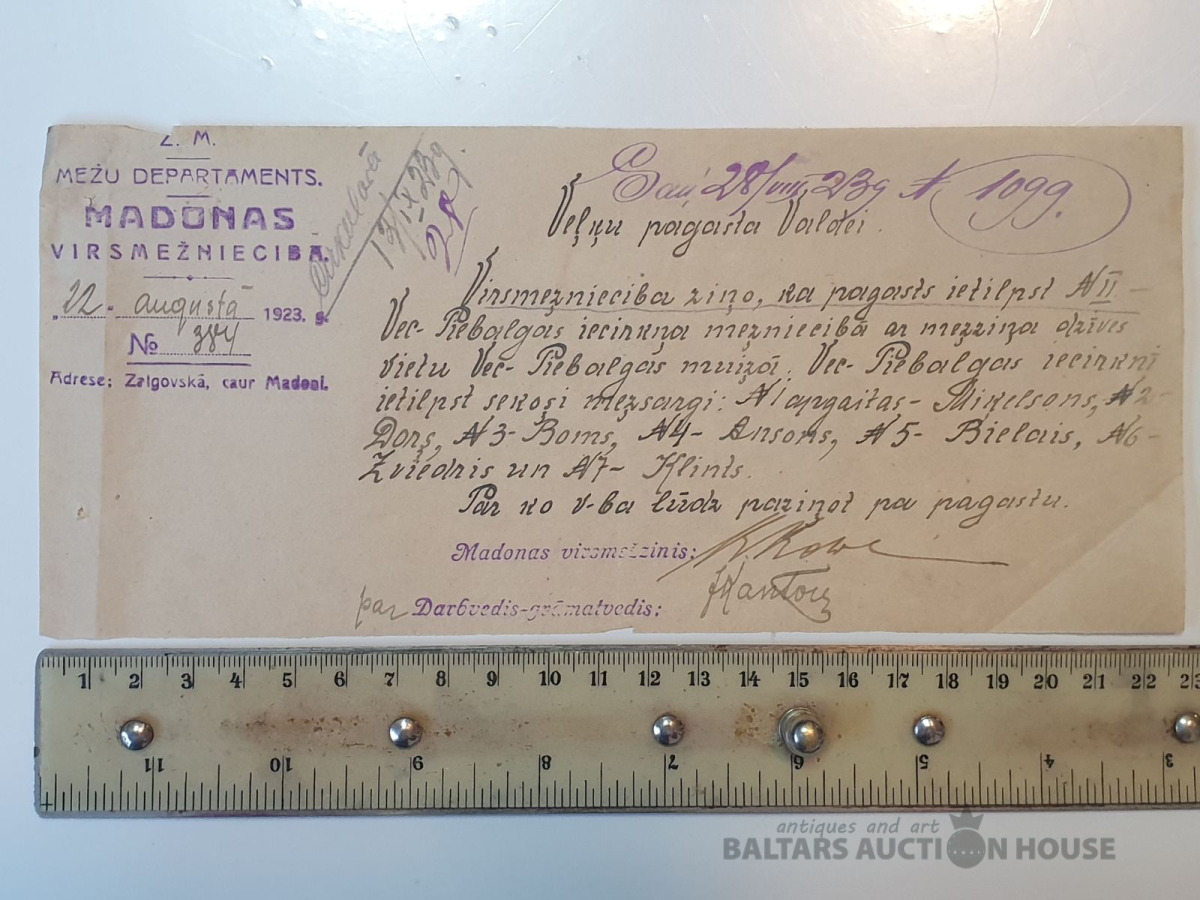 Z. M.
MEŽU DEPARTAMENTS.
MADONAS
VIRSMEŽNIECIBA.
„22." augustā 1923. g.
№ 334
Adrese: Zalgovskā, caur Madoni.
13/IX 23g.
28/VIII 23g № 1099.
Veļķu pagasta Valdei.
Virsmežnieciba ziņo, ka pagasts ietilpst № II
Vec-Piebalgas iecirkņa mežniecibā ar mežziņa dzives
vietu Vec-Piebalgas muižā. Vec-Piebalgas iecirkni
ietilpst sekoši mežsargi: №1 apgaitas- Miķelsons, №2-
Dorš, №3- Boms, №4- Ansons, №5- Bielais, №6-
Zviedris un №7- Klints.
Par ko v-ba lūdz paziņot pa pagastu.
Madonas virsmežzinis:
par Darbvedis-grāmatvedis:
1 2 3 4 5 6 7 8 9 10 11 12 13 14 15 16 17 18 19 20 21 22 23
11 10 9 8 7 6 5 4 3
antiques and art
BALTARS AUCTION HOUSE